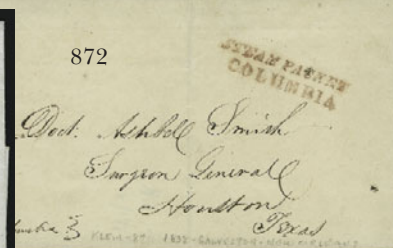 872
STEAM PACKET
COLUMBIA
Doct. Ashbel Smith
Surgeon General
Houston
Texas